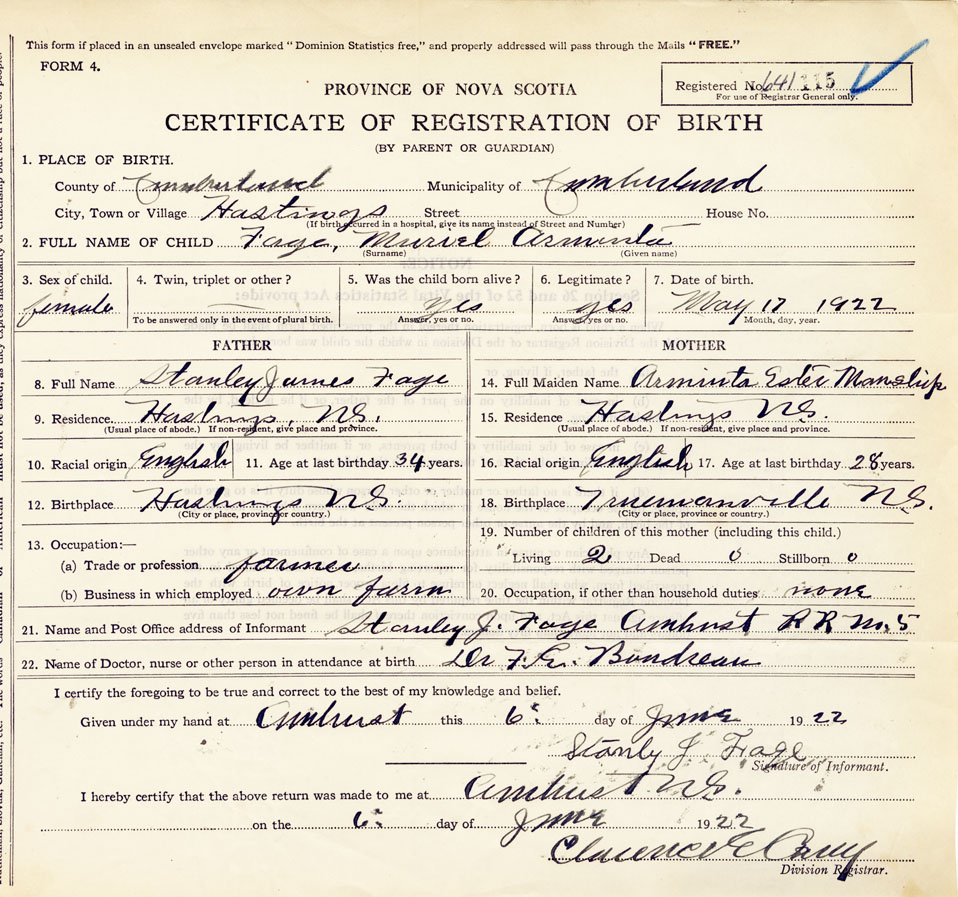 This form if placed in an unsealed envelope marked "Dominion Statistics free," and properly addressed will pass through the Mails "FREE."
FORM 4.
Registered No. 641 115
For use of Registrar General only.
PROVINCE OF NOVA SCOTIA
CERTIFICATE OF REGISTRATION OF BIRTH
(BY PARENT OR GUARDIAN)
1. PLACE OF BIRTH.
County of Cumberland Municipality of Cumberland
City, Town or Village Hastings Street House No.
(If birth occurred in a hospital, give its name instead of Street and Number)
2. FULL NAME OF CHILD Fage, Muriel Arminta
(Surname) (Given name)
3. Sex of child. 4. Twin, triplet or other? 5. Was the child born alive? 6. Legitimate? 7. Date of birth.
female yes yes May 17 1922
To be answered only in the event of plural birth. Answer, yes or no. Answer, yes or no. Month, day, year.
FATHER MOTHER
8. Full Name Stanley James Fage 14. Full Maiden Name Arminta Ester Manship
9. Residence Hastings, N.S. 15. Residence Hastings N.S.
(Usual place of abode.) If non-resident, give place and province. (Usual place of abode.) If non-resident, give place and province.
10. Racial origin English 11. Age at last birthday 34 years. 16. Racial origin English 17. Age at last birthday 28 years.
12. Birthplace Hastings N.S. 18. Birthplace Truemanville N.S.
(City or place, province or country.) (City or place, province or country.)
19. Number of children of this mother (including this child.)
13. Occupation:—
(a) Trade or profession farmer Living 2 Dead 0 Stillborn 0
(b) Business in which employed own farm 20. Occupation, if other than household duties none
21. Name and Post Office address of Informant Stanley J. Fage Amhurst R R No. 5
22. Name of Doctor, nurse or other person in attendance at birth Dr F. E. Boudreau
I certify the foregoing to be true and correct to the best of my knowledge and belief.
Given under my hand at Amhurst this 6 day of June 1922
Stanly J Fage
Signature of Informant.
I hereby certify that the above return was made to me at Amhurst N.S.
on the 6 day of June 1922
Clarence E
Division Registrar.